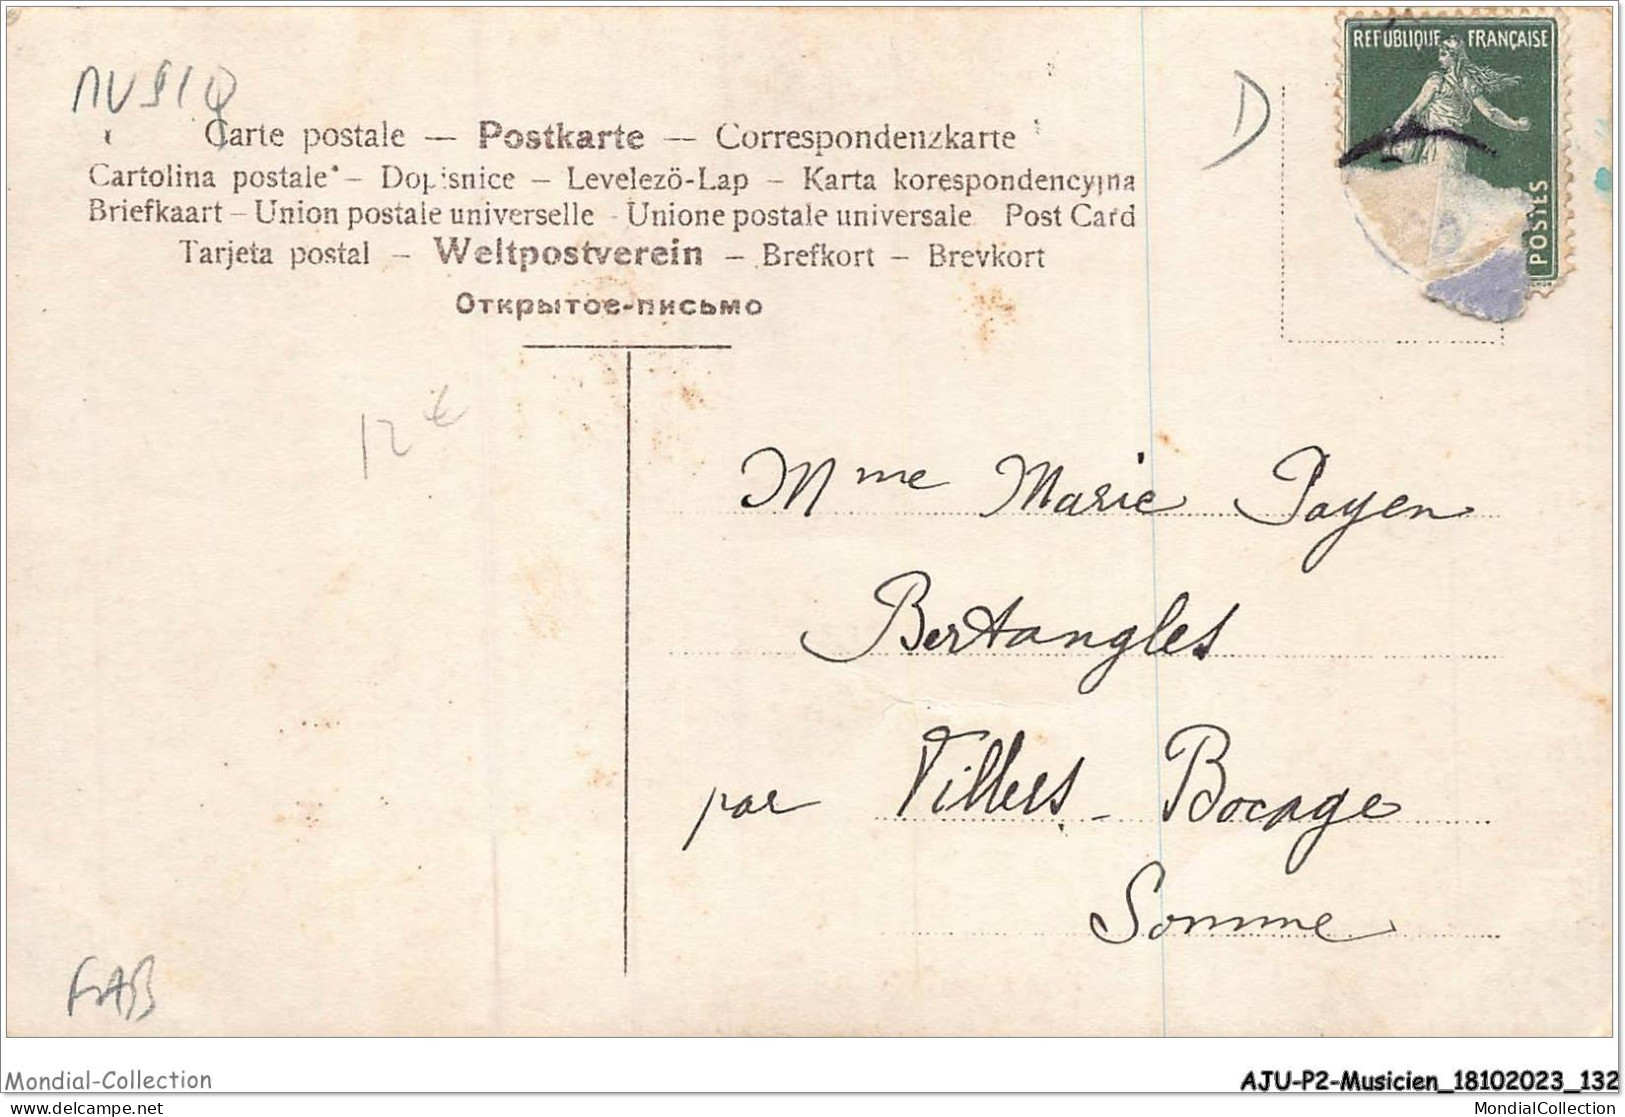 MUSIQ
D
REPUBLIQUE FRANÇAISE
POSTES
Carte postale — Postkarte — Correspondenzkarte
Cartolina postale – Dopisnice – Levelezö-Lap – Karta korespondencyjna
Briefkaart – Union postale universelle - Unione postale universale Post Card
Tarjeta postal – Weltpostverein – Brefkort – Brevkort
Открытое-письмо
12 €
Mme Marie Payen
Bertangles
par Villers-Bocage
Somme
FAB
Mondial-Collection
AJU-P2-Musicien_18102023_132
delcampe.net
MondialCollection